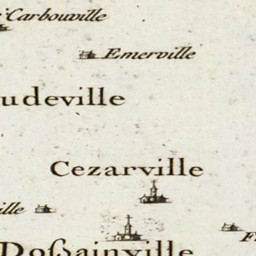 Carbouville
Emerville
udeville
Cezarville
ille
Doßainville
F